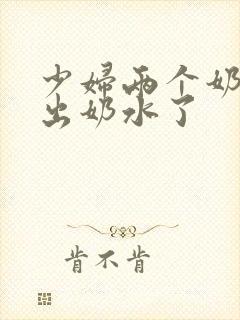 少婦兩个奶
出奶水了
肯不肯